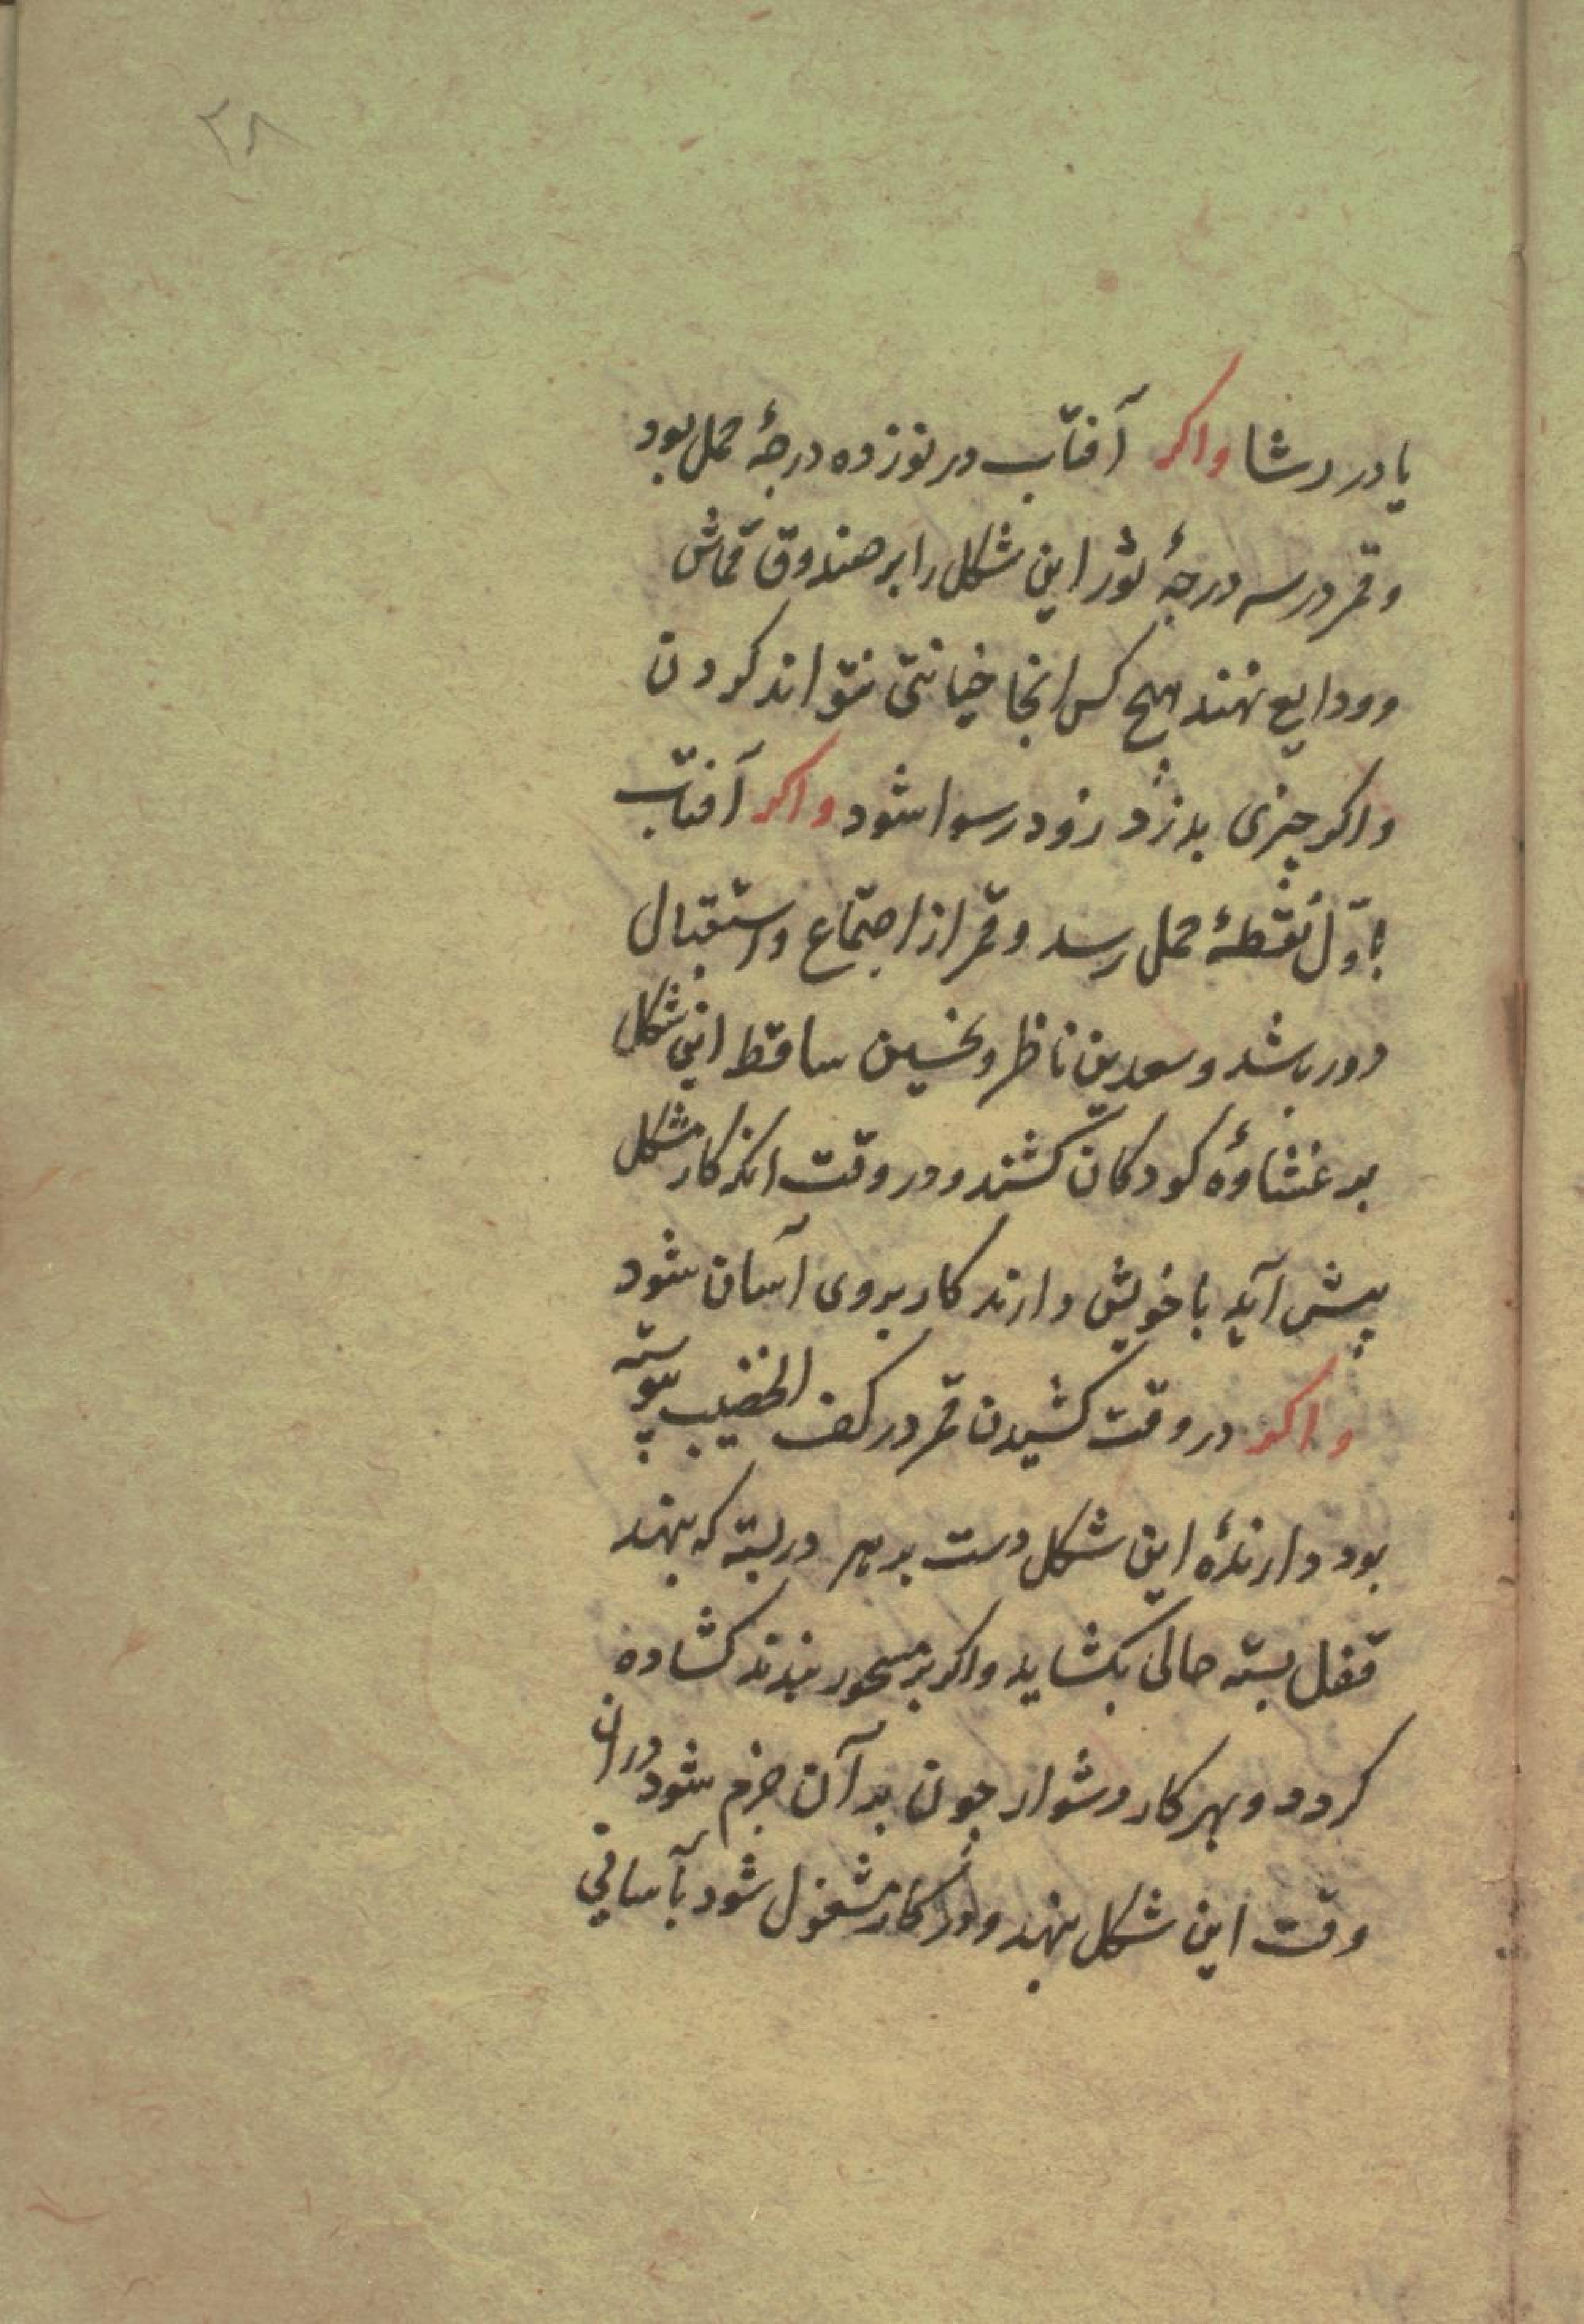 ۲۸
یا در رشا واکر آفتاب در نوزده درجهٔ حمل بود
وقمر در سه درجهٔ ثور این شکل را بر صندوق قماش
وودایع نهند هیچ کس انجا خیانتی نتواند کردن
واکر چیزی بدزدد زود رسوا شود واکر آفتاب
باوّل نقطهٔ حمل رسد وقمر از اجتماع واستقبال
دور باشد وسعدین ناظر ونحسین ساقط این شکل
بر غشاوهٔ کودکان کشند ودر وقت انکه کار مشکل
پیش آید با خویش دارند کار بروی آسان شود
واکر در وقت کشیدن قمر در کف الخضیب پیوسته
بود دارندهٔ این شکل دست بر هر در بسته که بنهد
قفل بسته حالی بکشاید واکر بر مسحور بندند کشاده
کردد وبهر کار دشوار چون بدآن جزم شود دران
وقت این شکل بنهد ودر کار مشغول شود بآسانی